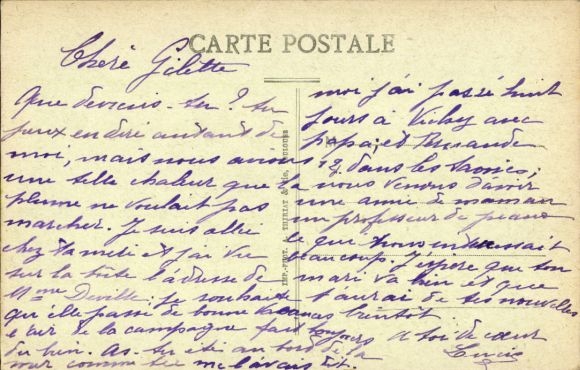 CARTE POSTALE
Chère Gilette
Que deviens-tu ? tu
peux en dire autant de
moi, mais nous avions
une telle chaleur que la
plume ne voulait pas
marcher. Je suis allé
chez ta mère et j'ai vu
sur la boîte l'adresse de
Mme Deville; je souhaite
qu'elle passe de bonne vacances
l'air de la campagne fait toujours
du bien. As-tu été au bord de la
mer comme tu me l'avais dit.
moi j'ai passé huit
jours à Vichy avec
papa; et
dans les
nous venons d'avoir
une amie de maman
un professeur de piano
ce que nous intéressait
beaucoup. J'espère que ton
mari va bien et que
t'aurai de tes nouvelles
bientôt
a toi de cœur
Lucie
IMP.-PHOT. A. THIRIAT & Cie, TOULOUSE